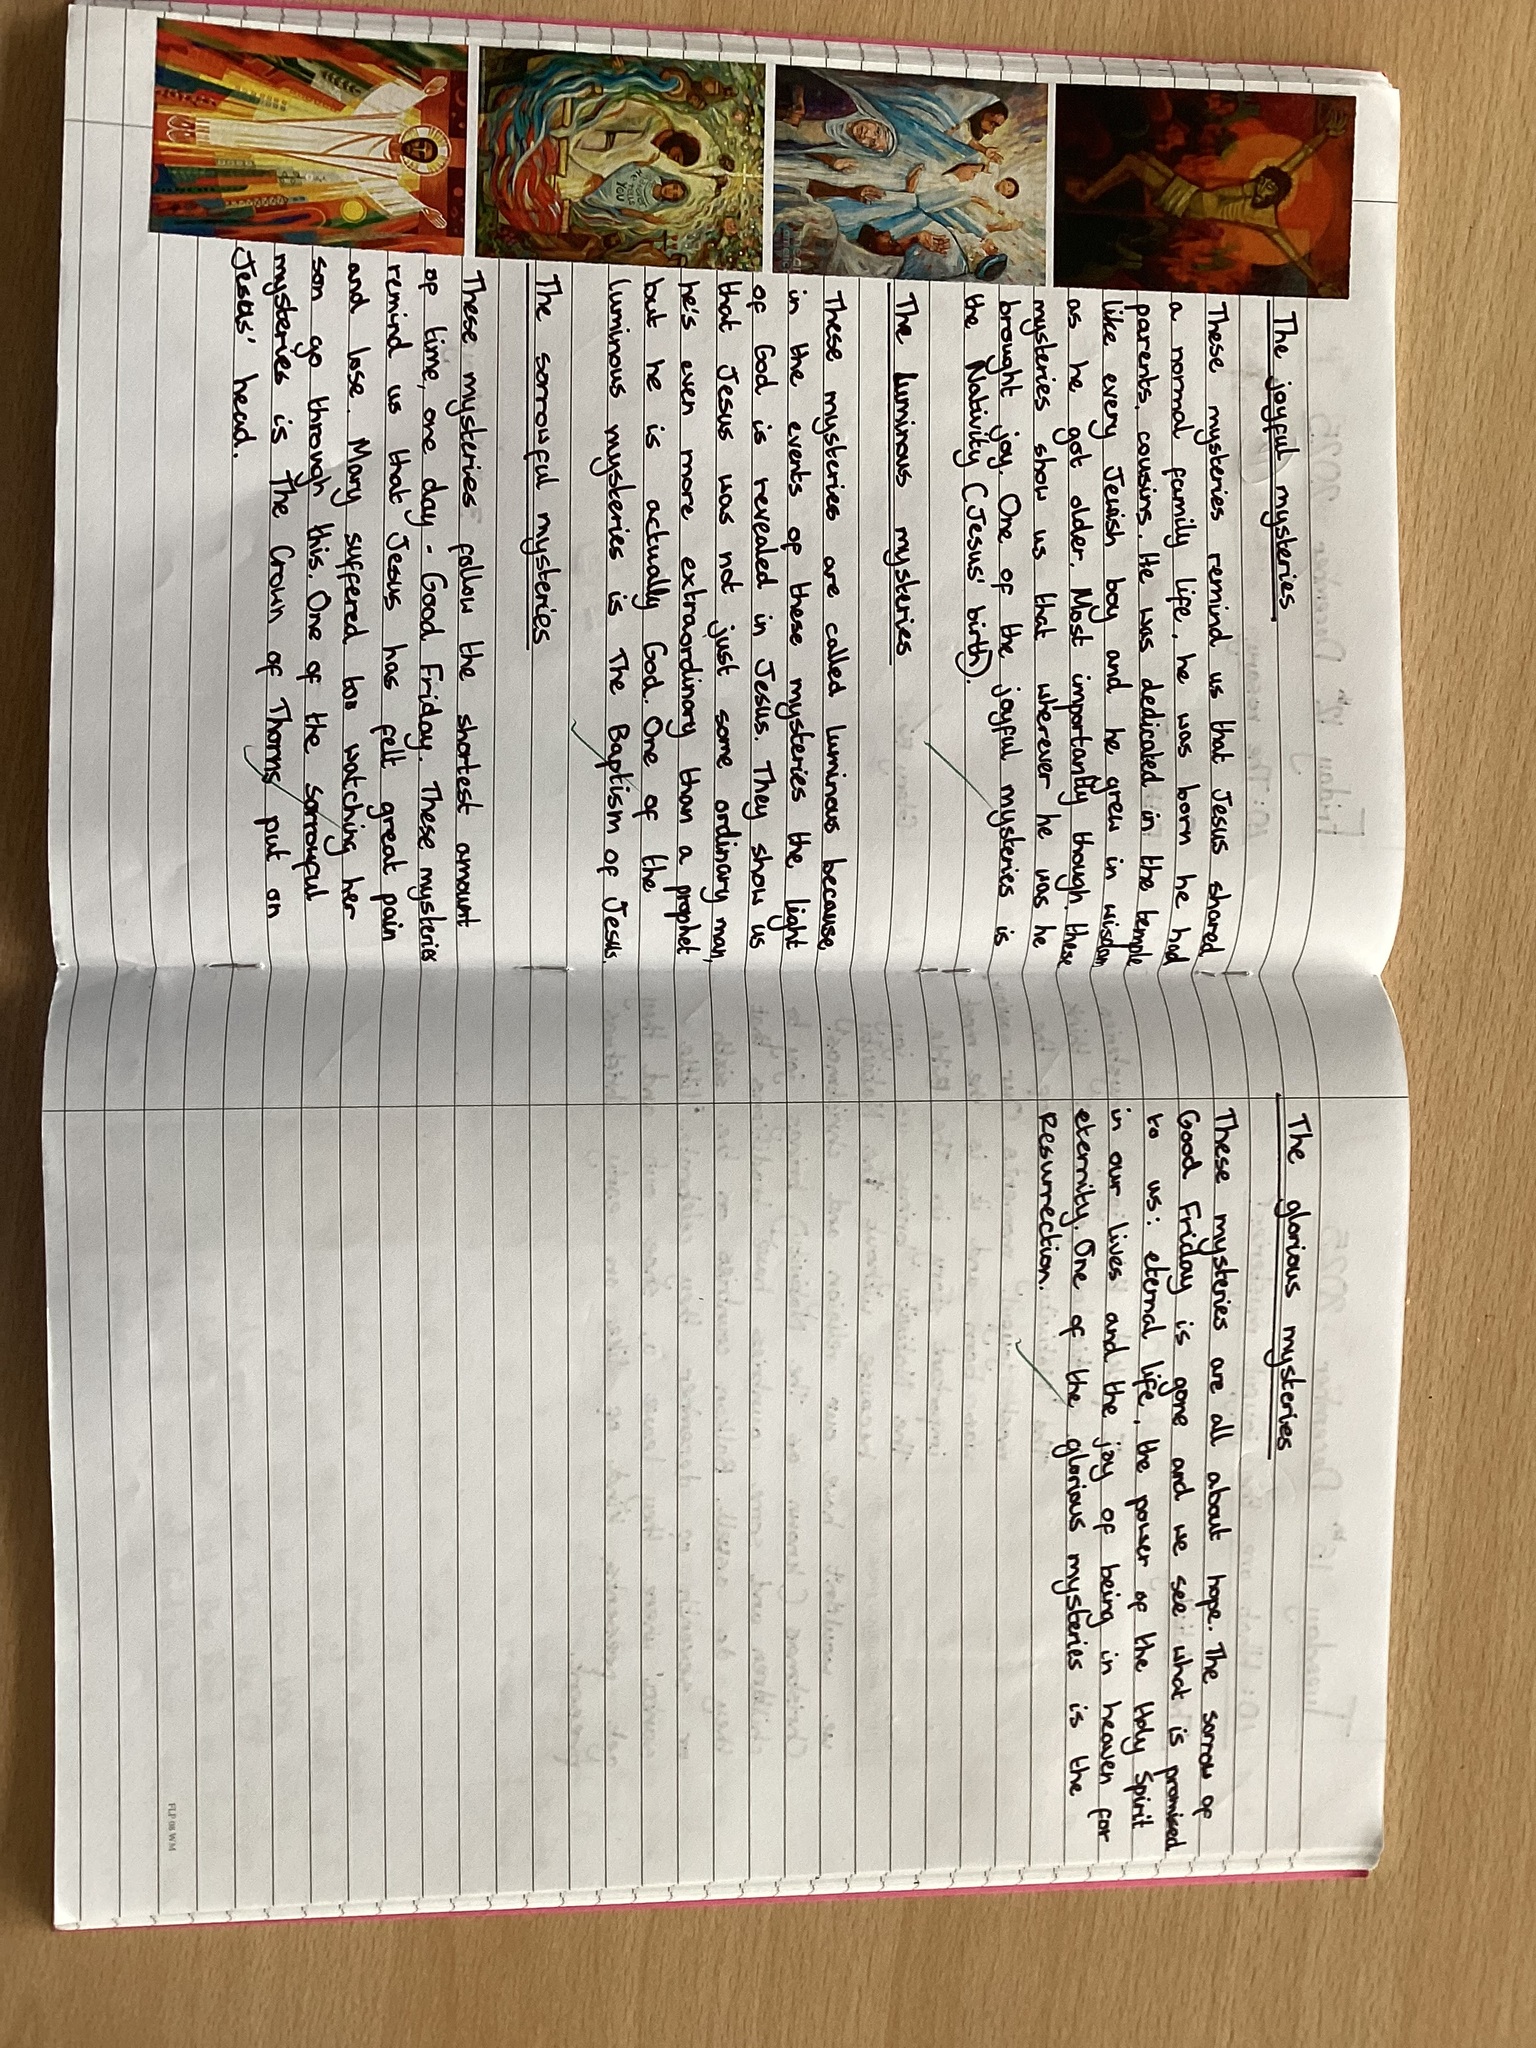 The joyful mysteries
These mysteries remind us that Jesus shared
a normal family life, he was born he had
parents, cousins. He was dedicated in the temple
like every Jewish boy and he grew in wisdom
as he got older. Most importantly though, these
mysteries show us that wherever he was he
brought joy. One of the joyful mysteries is
the Nativity (Jesus' birth).
The luminous mysteries
These mysteries are called luminous because,
in the events of these mysteries the light
of God is revealed in Jesus. They show us
that Jesus was not just some ordinary man,
he's even more extraordinary than a prophet
but he is actually God. One of the
luminous mysteries is The Baptism of Jesus.
The sorrowful mysteries
These mysteries follow the shortest amount
of time, one day - Good Friday. These mysteries
remind us that Jesus has felt great pain
and lose. Mary suffered too watching her
son go through this. One of the sorrowful
mysteries is The Crown of Thorns put on
Jesus' head.
The glorious mysteries
These mysteries are all about hope. The sorrow of
Good Friday is gone and we see what is promised
to us: eternal life, the power of the Holy Spirit
in our lives and the joy of being in heaven for
eternity. One of the glorious mysteries is the
Resurrection.
FLP 08 WM